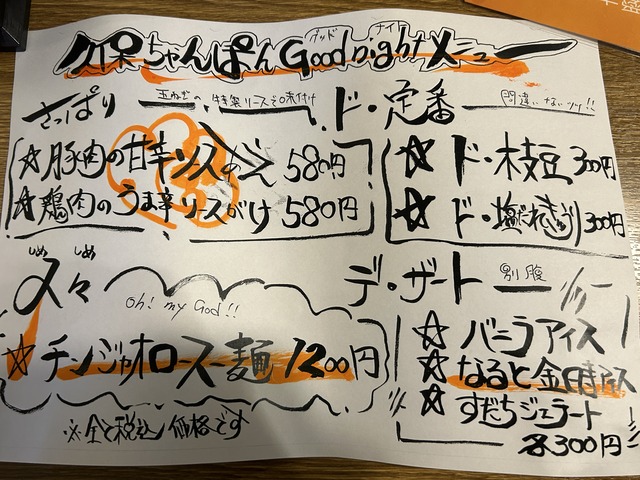 久保ちゃんぽんGood nightメニュー
グッド ナイト
さっぱり 玉ねぎの、特製ソースで味付け
☆豚肉の甘辛ソースがけ 580円
☆鶏肉のうま辛ソースがけ 580円
ド・定番 間違いないッ!!
☆ド・枝豆 300円
☆ド・塩だれきゅうり 300円
しめ しめ
〆々 Oh! my God!!
☆チンジャオロース麺 1200円
※全て税込価格です
デ・ザート 別腹
☆バニラアイス
☆なると金時アイス
☆すだちジェラート
各300円